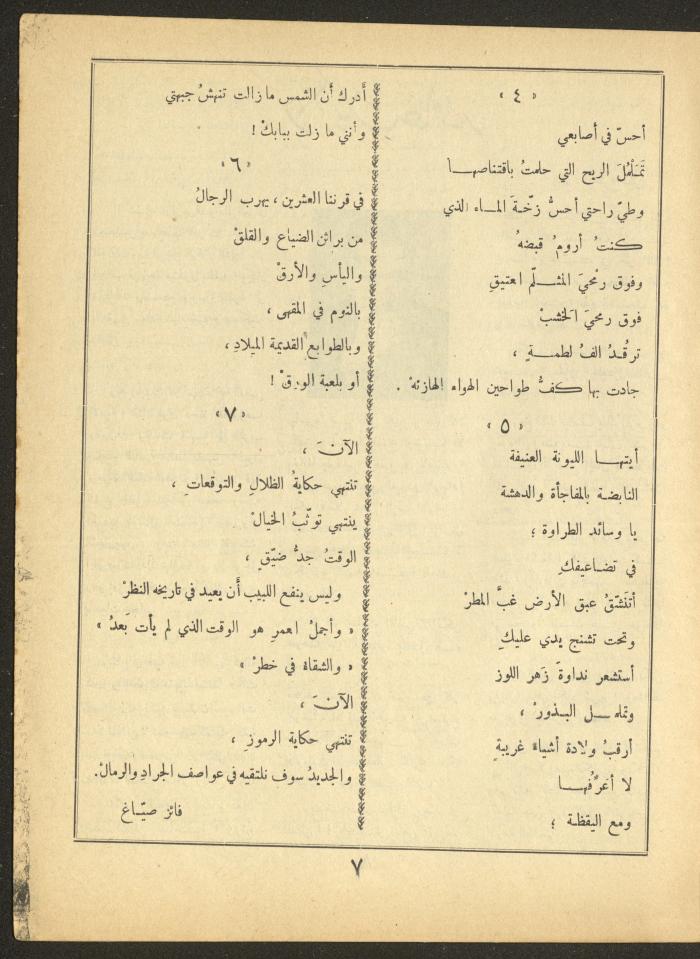 « ٤ »
أحسّ في أصابعي
تَمَلْمُلَ الريح التي حلمتُ باقتناصهـــا
وطيّ راحتي أحسُّ زخّـةَ المـــاء الذي
كنتُ أرومُ قبضهُ
وفوق رمْحيَ المثـــلّم اعتيقِ
فوق رمحيَ الخشبْ
ترقُـدُ الفُ لطمـــةٍ ،
جادت بها كفُّ طواحين الهواء الهازئهْ .
« ٥ »
أيتهـــا الليونة العنيفة
النابضة بالمفاجأة والدهشة
يا وسائد الطراوة ؛
في تضـاعيفكِ
أتنَشّقُ عبق الأرض غبَّ المطرْ
وتحت تشنج يدي عليكِ
أستشعر نداوةَ زَهر اللوز
وتململ البـذورْ ،
أرقبُ ولادة أشياء غريبةٍ
لا أعرُفُهـــا
ومع اليقظـة ؛
أدرك أن الشمس ما زالت تنهشُ جبهتي
وأنني ما زلت ببابكْ !
« ٦ »
في قرننا العشرين ، يهرب الرجالُ
من براثن الضياع والقلقْ
واليأسِ والأرقْ
بالنوم في المقهى ،
وبالطوابع القديمة الميلادِ ،
أو بلعبة الورقْ !
« ٧ »
الآنَ ،
تنتهي حكايةُ الظلالِ والتوقعاتِ ،
ينتهي توثّبُ الخيالْ
الوقتُ جدُّ ضيّقٍ ،
وليس ينفع اللبيب أن يعيد في تاريخه النظرْ
« وأجملُ اعمرِ هو الوقت الذي لم يأت بَعدُ »
« والشقاة في خطرْ »
الآنَ ،
تنتهي حكاية الرموزِ ،
والجديدُ سوف نلتقيه في عواصف الجرادِ والرمالْ.
فائز صيّـاغ
٧